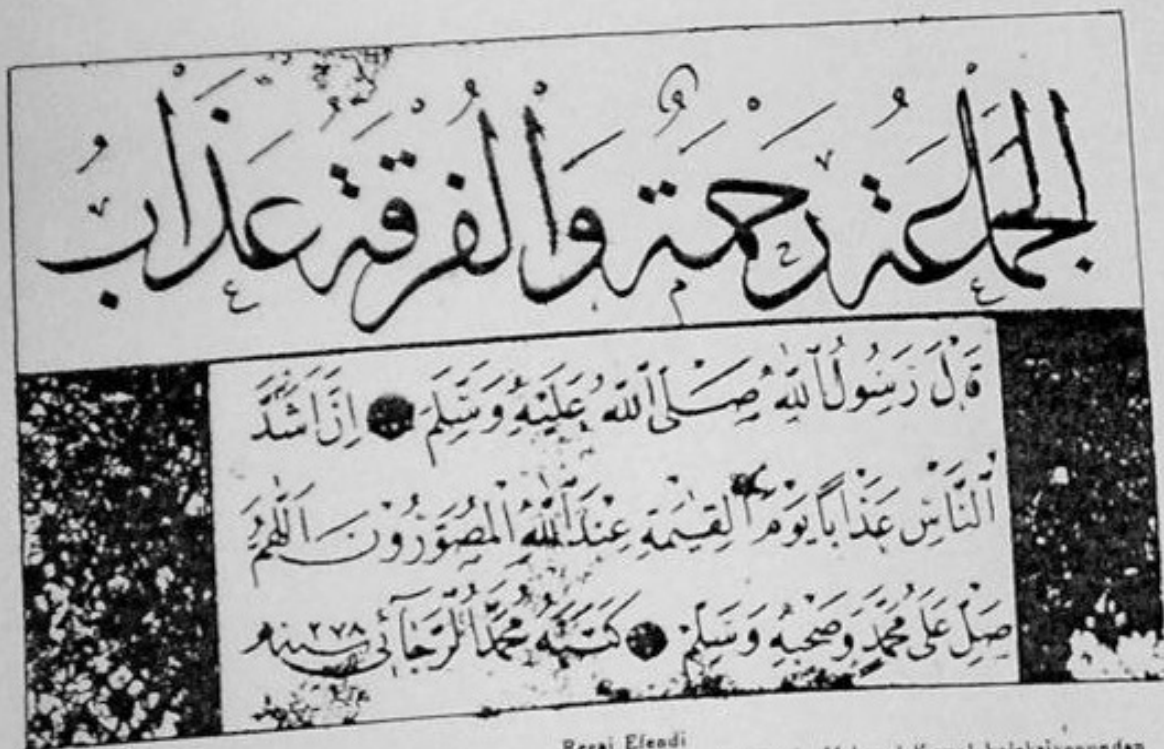 الجماعة رحمة والفرقة عذاب
قال رسول الله صلى الله عليه وسلم ان اشد
الناس عذابا يوم القيمة عند الله المصورون اللهم
صل على محمد وصحبه وسلم كتبه محمد الرجائى سنه ٢٧٨
Recai Efendi